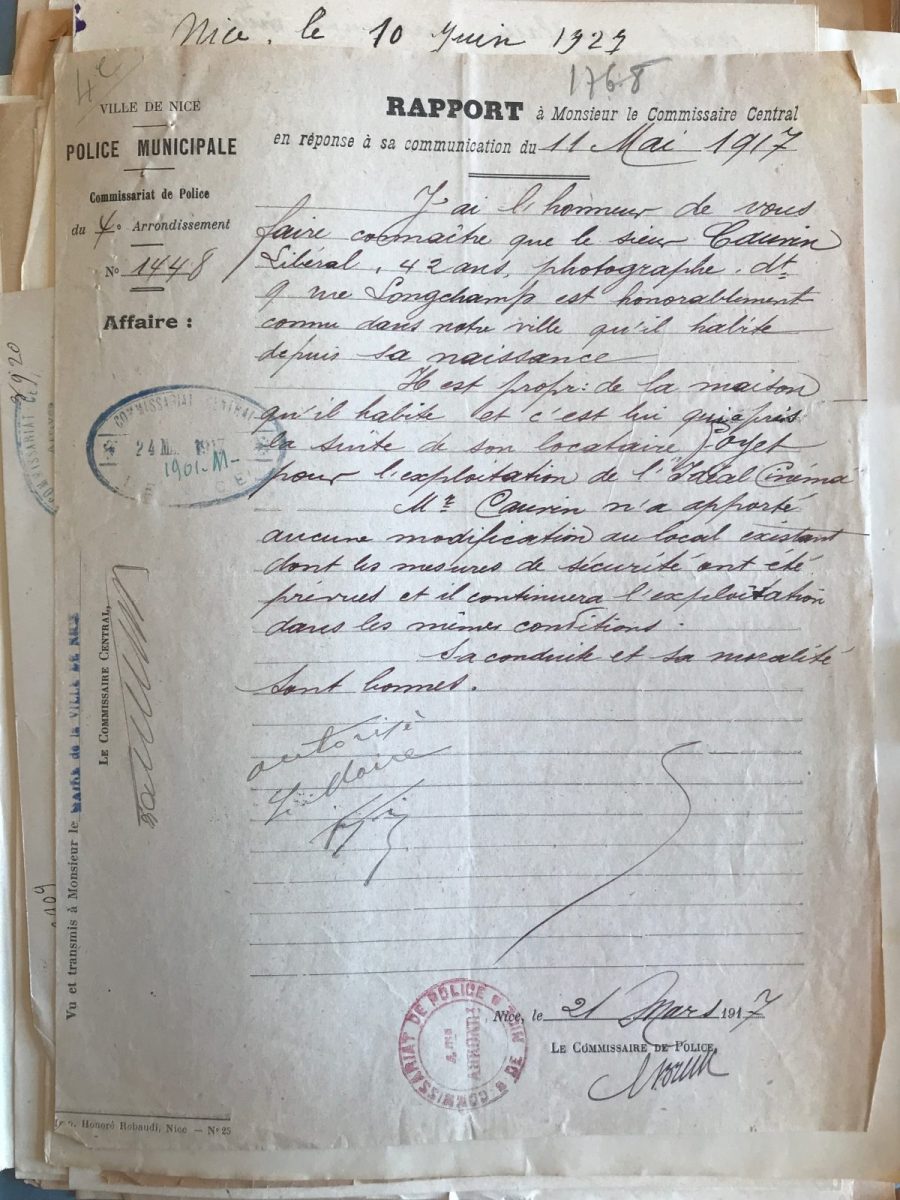 Nice, le 10 Juin 1927
4e
1768
VILLE DE NICE
POLICE MUNICIPALE
Commissariat de Police
du 4e Arrondissement
No 1448
Affaire :
RAPPORT à Monsieur le Commissaire Central
en réponse à sa communication du 11 Mai 1917
J'ai l'honneur de vous
faire connaître que le sieur Cauvin
Libéral, 42 ans, photographe, dt
9 rue Longchamp est honorablement
connu dans notre ville qu'il habite
depuis sa naissance
Il est propr: de la maison
qu'il habite et c'est lui qui a pris
la suite de son locataire Poyet
pour l'exploitation de l'Idéal Cinéma
Mr Cauvin n'a apporté
aucune modification au local existant
dont les mesures de sécurité ont été
prévues et il continuera l'exploitation
dans les mêmes conditions.
Sa conduite et sa moralité
sont bonnes.
autorisé
Le Maire
COMMISSARIAT CENTRAL
24 M 1917
1901-M-
NICE
Vu et transmis à Monsieur le Maire de la VILLE DE NICE
LE COMMISSAIRE CENTRAL,
COMMISSARIAT DE POLICE
4me
ARRONDT
Nice, le 21 Mars 1917
LE COMMISSAIRE DE POLICE,
Honoré Robaudi, Nice — No 25
COMMISSARIAT CE
3920
1909